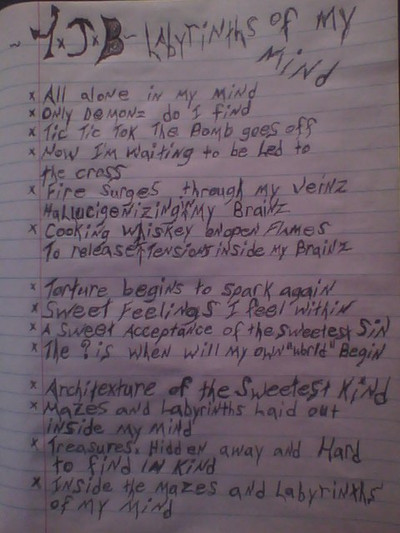 ~ Y x J x B ~ Labyrinths of my
Mind
x All alone in my mind
x Only Demonz do I find
x Tic Tic Tok The Bomb goes off
x Now I'm waiting to be led to
the cross
x Fire surges through my veinz
Halucigenizing my Brainz
x Cooking whiskey on open flames
To release Tensions inside my Brainz
x Torture begins to spark again
x Sweet Feelings I feel within
x A Sweet Acceptance of the sweetest Sin
x The ? is when will my own "world" Begin
x Architexture of the Sweetest Kind
x Mazes and Labyrinths Laid out
inside my mind
x Treasures, Hidden away and Hard
to find in Kind
x Inside the Mazes and Labyrinths
of My Mind